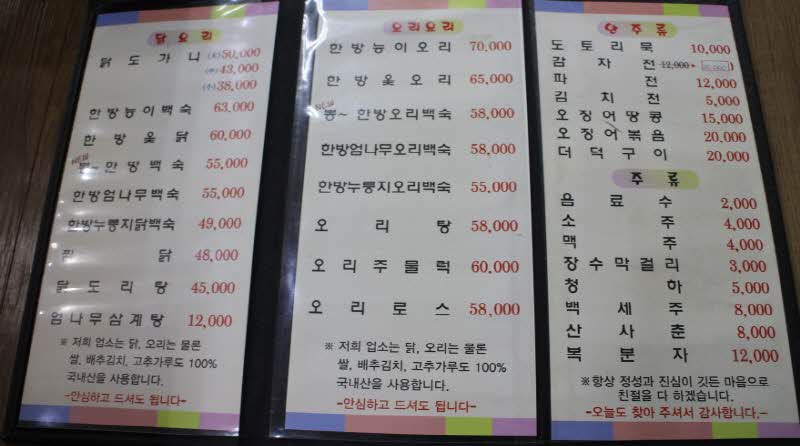 닭요리
닭도가니 (大)50,000
(中)43,000
(小)38,000
한방능이백숙 63,000
한방옻닭 60,000
NEW 뽕~한방백숙 55,000
한방엄나무백숙 55,000
한방누룽지닭백숙 49,000
찜닭 48,000
닭도리탕 45,000
엄나무삼계탕 12,000
※ 저희 업소는 닭, 오리는 물론
쌀, 배추김치, 고추가루도 100%
국내산을 사용합니다.
-안심하고 드셔도 됩니다-
오리요리
한방능이오리 70,000
한방옻오리 65,000
NEW 뽕~ 한방오리백숙 58,000
한방엄나무오리백숙 58,000
한방누룽지오리백숙 55,000
오리탕 58,000
오리주물럭 60,000
오리로스 58,000
※ 저희 업소는 닭, 오리는 물론
쌀, 배추김치, 고추가루도 100%
국내산을 사용합니다.
-안심하고 드셔도 됩니다-
안주류
도토리묵 10,000
감자전 12,000
파전 12,000
김치전 5,000
오징어땅콩 15,000
오징어볶음 20,000
더덕구이 20,000
주류
음료수 2,000
소주 4,000
맥주 4,000
장수막걸리 3,000
청하 5,000
백세주 8,000
산사춘 8,000
복분자 12,000
※항상 정성과 진심이 깃든 마음으로
친절을 다 하겠습니다.
-오늘도 찾아 주셔서 감사합니다.-